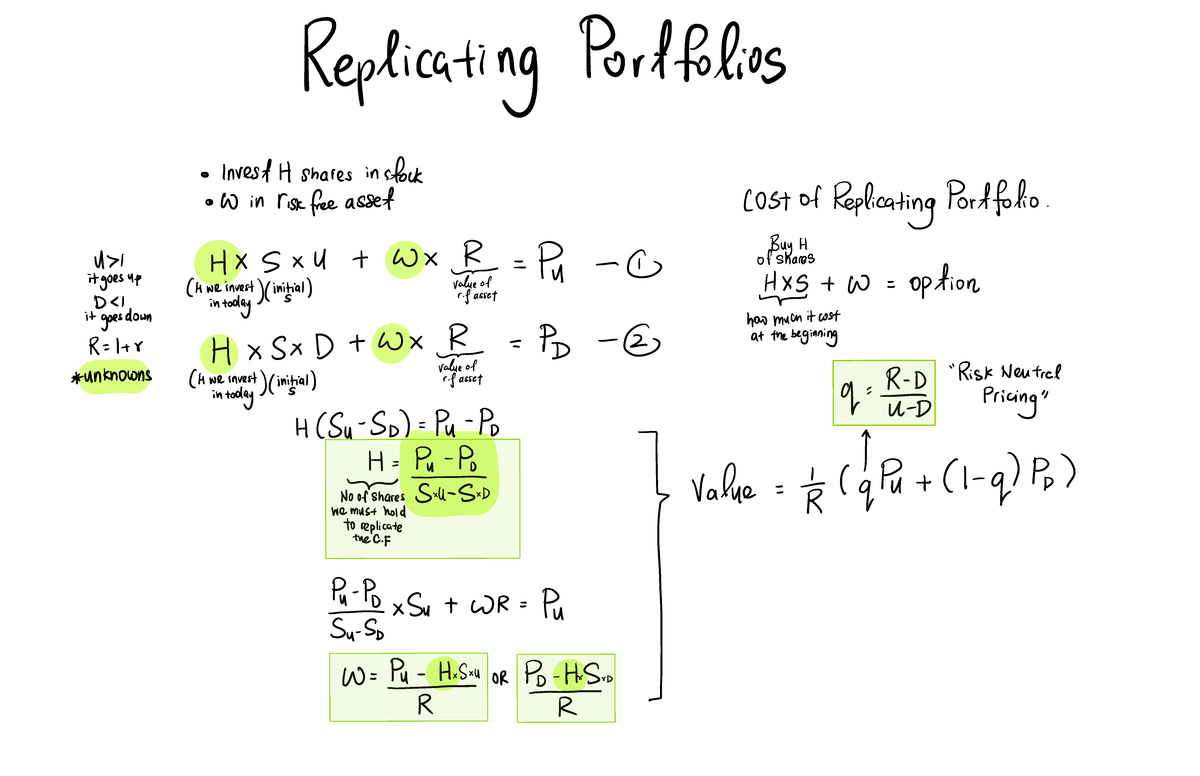 Replicating Portfolios
• Invest H shares in stock
• W in risk free asset
U>1
it goes up
D<1
it goes down
R=1+r
*unknowns
H × S × U + W × R = Pu – ①
(H we invest in today) (initial S) value of r.f asset
H × S × D + W × R = PD – ②
(H we invest in today) (initial S) value of r.f asset
H(Su-SD) = Pu-PD
H = Pu-PD / S×U-S×D
No of shares
we must hold
to replicate
the C.F
Pu-PD / Su-SD × Su + WR = Pu
W = Pu - H×S×U / R OR PD - H×S×D / R
Cost of Replicating Portfolio.
Buy H
of shares
H×S + W = option
how much it cost
at the beginning
q = R-D / U-D
"Risk Neutral
Pricing"
Value = 1/R (qPu + (1-q) PD)